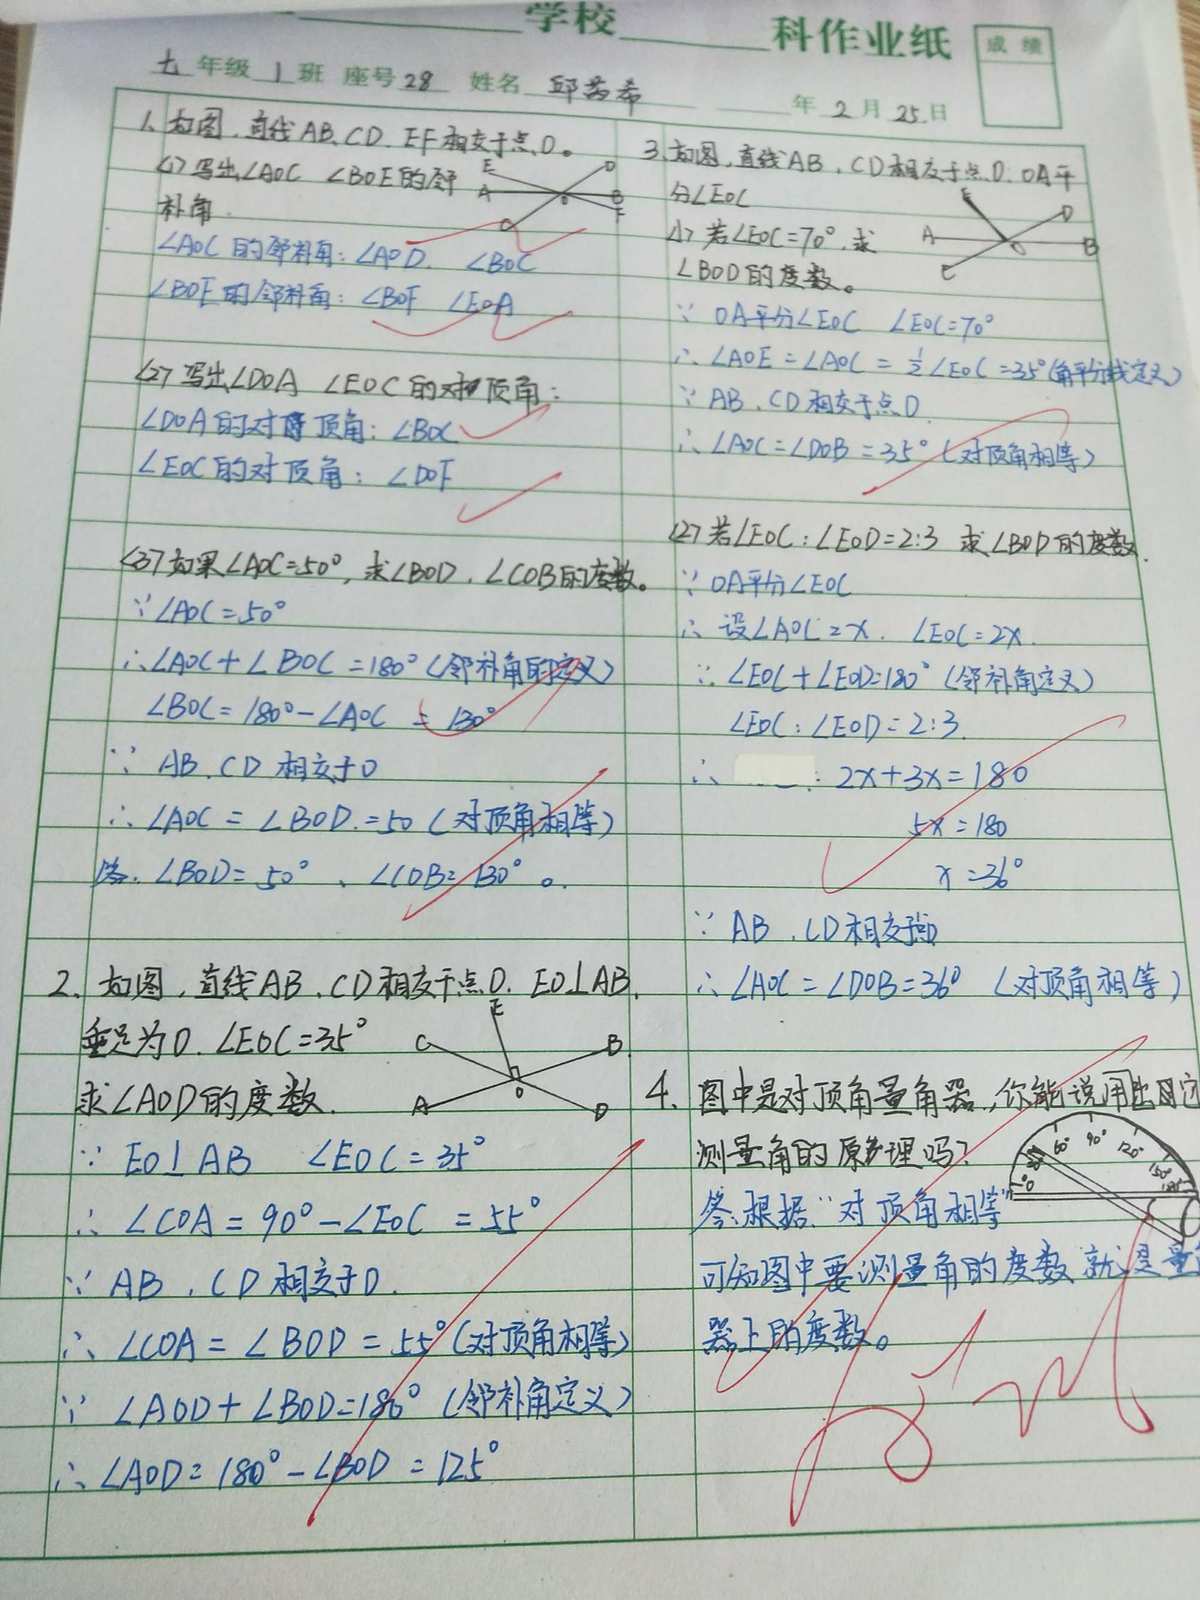 学校 科作业纸
成绩
七年级 1 班 座号 28 姓名 邱茜希 年 2 月 25 日
1、如图，直线AB、CD、EF相交于点O。
<1>写出∠AOC ∠BOE的邻
补角.
E D
A O B
C F
∠AOC的邻补角：∠AOD. ∠BOC
∠BOE的邻补角：∠BOF ∠EOA
<2>写出∠DOA ∠EOC的对顶角：
∠DOA的对顶角：∠BOC
∠EOC的对顶角：∠DOF
<3>如果∠AOC=50°，求∠BOD、∠COB的度数。
∵∠AOC=50°
∴∠AOC+∠BOC=180°(邻补角的定义)
∠BOC=180°-∠AOC =130°
∵ AB、CD相交于O
∴∠AOC=∠BOD=50(对顶角相等)
答.∠BOD=50°、∠COB=130°。
2、如图，直线AB、CD相交于点O. EO⊥AB,
垂足为O. ∠EOC=35°
求∠AOD的度数.
E
C B
O
A D
∵ EO⊥AB ∠EOC=35°
∴ ∠COA=90°-∠EOC =55°
∵ AB、CD相交于O.
∴ ∠COA=∠BOD=55°(对顶角相等)
∵ ∠AOD+∠BOD=180°(邻补角定义)
∴ ∠AOD=180°-∠BOD =125°
3、如图，直线AB、CD相交于点O. OA平
分∠EOC
<1>若∠EOC=70°，求
∠BOD的度数。
E D
A O B
C
∵ OA平分∠EOC ∠EOC=70°
∴ ∠AOE=∠AOC=½∠EOC=35°(角平分线定义)
∵ AB、CD相交于点O
∴ ∠AOC=∠DOB=35°(对顶角相等)
<2>若∠EOC:∠EOD=2:3 求∠BOD的度数.
∵ OA平分∠EOC
∴ 设∠AOC=x. ∠EOC=2x.
∵ ∠EOC+∠EOD=180°(邻补角定义)
∠EOC:∠EOD=2:3.
∴ : 2x+3x=180
5x=180
x=36°
∵ AB、CD相交于点O
∴ ∠AOC=∠DOB=36° (对顶角相等)
4、图中是对顶角量角器，你能说出用它
测量角的原理吗？
0 30° 60° 90° 120° 150° 180°
答、根据“对顶角相等”
可知图中要测量角的度数就是量角
器上的度数。